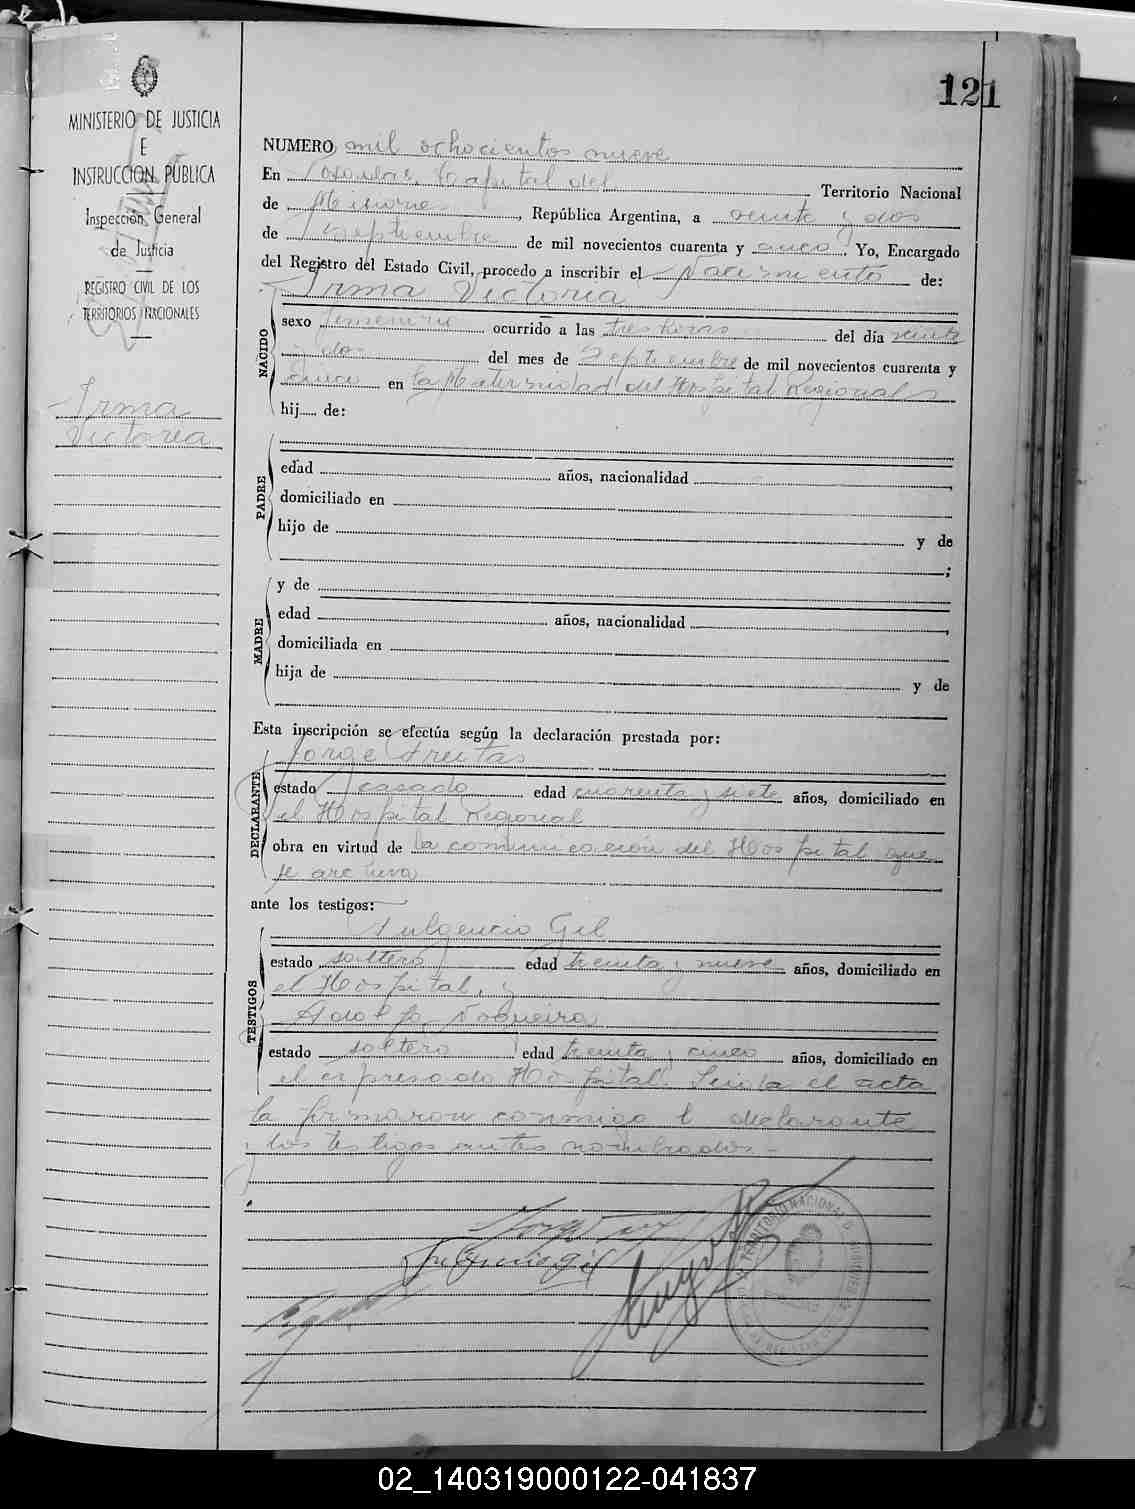 121
MINISTERIO DE JUSTICIA
E
INSTRUCCION PUBLICA
Inspección General
de Justicia
REGISTRO CIVIL DE LOS
TERRITORIOS NACIONALES
Irma
Victoria
NUMERO mil ochocientos nueve
En Posadas, Capital del Territorio Nacional
de Misiones, República Argentina, a veinte y dos
de Septiembre de mil novecientos cuarenta y cinco. Yo, Encargado
del Registro del Estado Civil, procedo a inscribir el Nacimiento de:
Irma Victoria
NACIDO
sexo femenino ocurrido a las tres horas del día veinte
y dos del mes de Septiembre de mil novecientos cuarenta y
cinco en la Maternidad del Hospital Regional
hij de:
PADRE
edad años, nacionalidad
domiciliado en
hijo de y de
;
MADRE
y de
edad años, nacionalidad ,
domiciliada en
hija de y de
Esta inscripción se efectúa según la declaración prestada por:
Jorge Freitas
DECLARANTE
estado casado edad cuarenta y siete años, domiciliado en
el Hospital Regional
obra en virtud de la comunicación del Hospital que
se archiva
ante los testigos:
Fulgencio Gil
TESTIGOS
estado soltero edad treinta y nueve años, domiciliado en
el Hospital, y
Adolfo Nogueira
estado soltero edad treinta y cinco años, domiciliado en
el expresado Hospital. Leida el acta
la firmaron conmigo el declarante
y los testigos antes nombrados.-
02_140319000122-041837